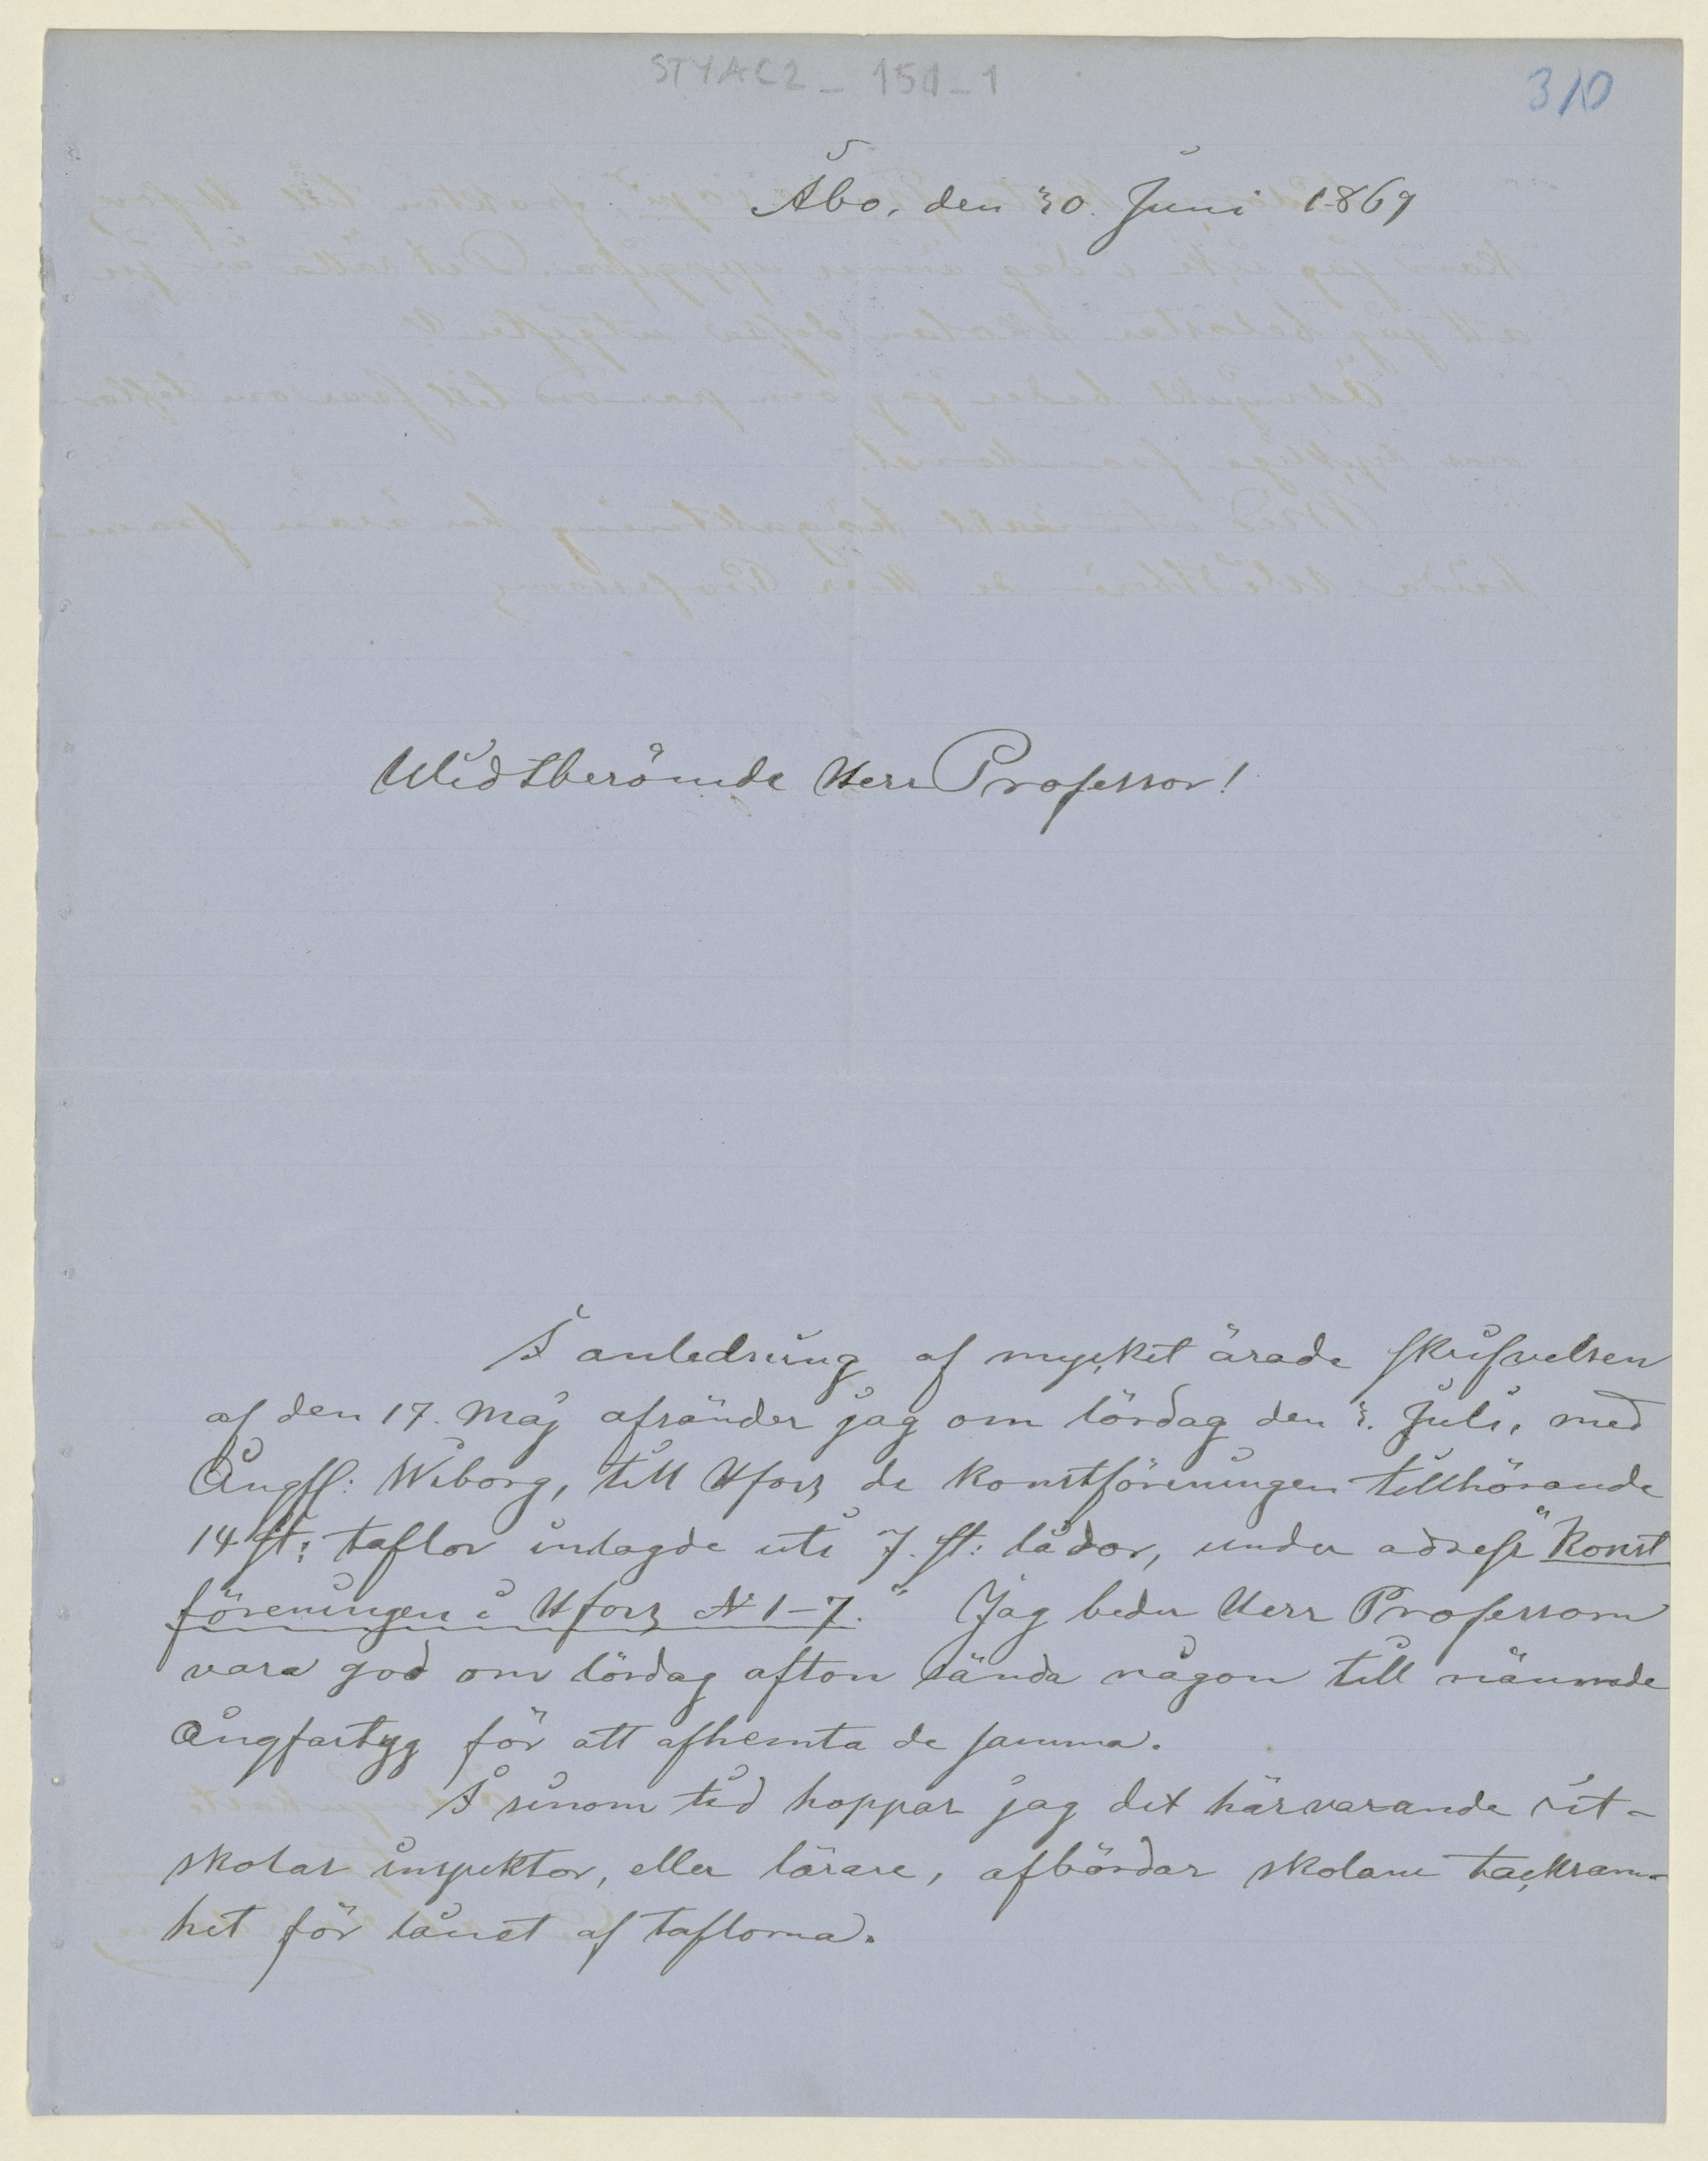 STYAC2_151_1
310
Åbo, den 30. Juni 1869
Widtberömde Herr Professor!
I anledning af mycket ärade skrifvelsen
af den 17. Maj afsänder jag om lördag den 3. Juli, med
Ångff: Wiborg, till Hfors de konstföreningen tillhörande
14 st: taflor inlagde uti 7. st: lådor, under adress "Konst
föreningen i Hfors N 1–7." Jag beder Herr Professorn
vara god om lördag afton sända någon till nämnde
Ångfartyg för att afhemta de samma.
I sinom tid hoppas jag det härvarande rit-
skolas inspektor, eller lärare, afbördar skolans tacksam-
het för lånet af taflorna.